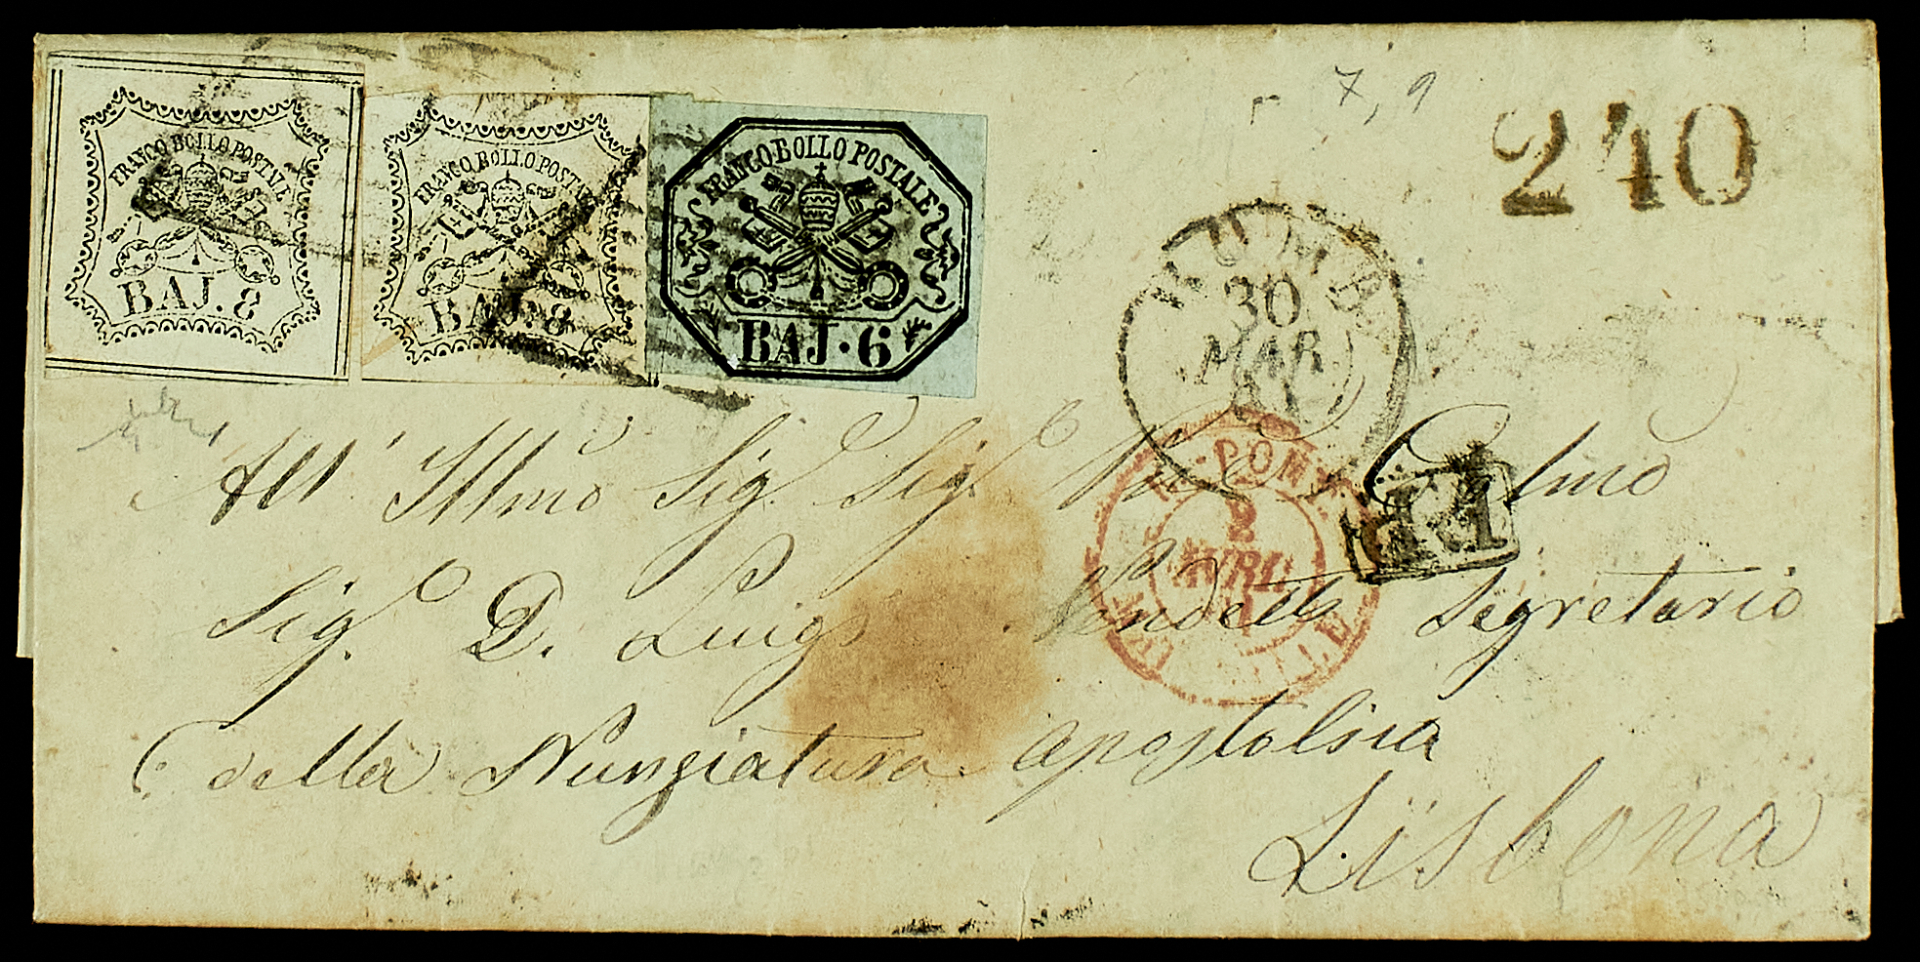 FRANCO BOLLO POSTALE
BAJ. 8
FRANCO BOLLO POSTALE
BAJ. 8
FRANCO BOLLO POSTALE
BAJ. 6
7, 9
240
ROMA
30
MAR
61
E. PONT.
2
AVRIL
MARSEILLE
All' Illmo Sig. Sig. Colmo
Sig. D. Luigi Segretario
della Nunziatura apostolica
Lisbona